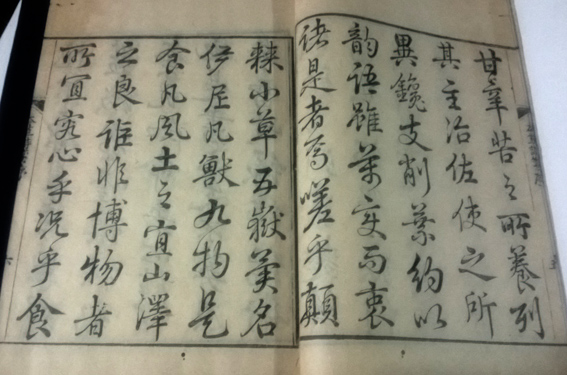 甘辛苦之所養列
其主治佐使之所
異鑱支削葉約以
韵語雖萬変而衷
諸是者焉嗟乎顛
棘小草五嶽異名
伊尼凡獸九物是
食凡風土之宜山澤
之良誰非博物者
所宜究心乎况乎食